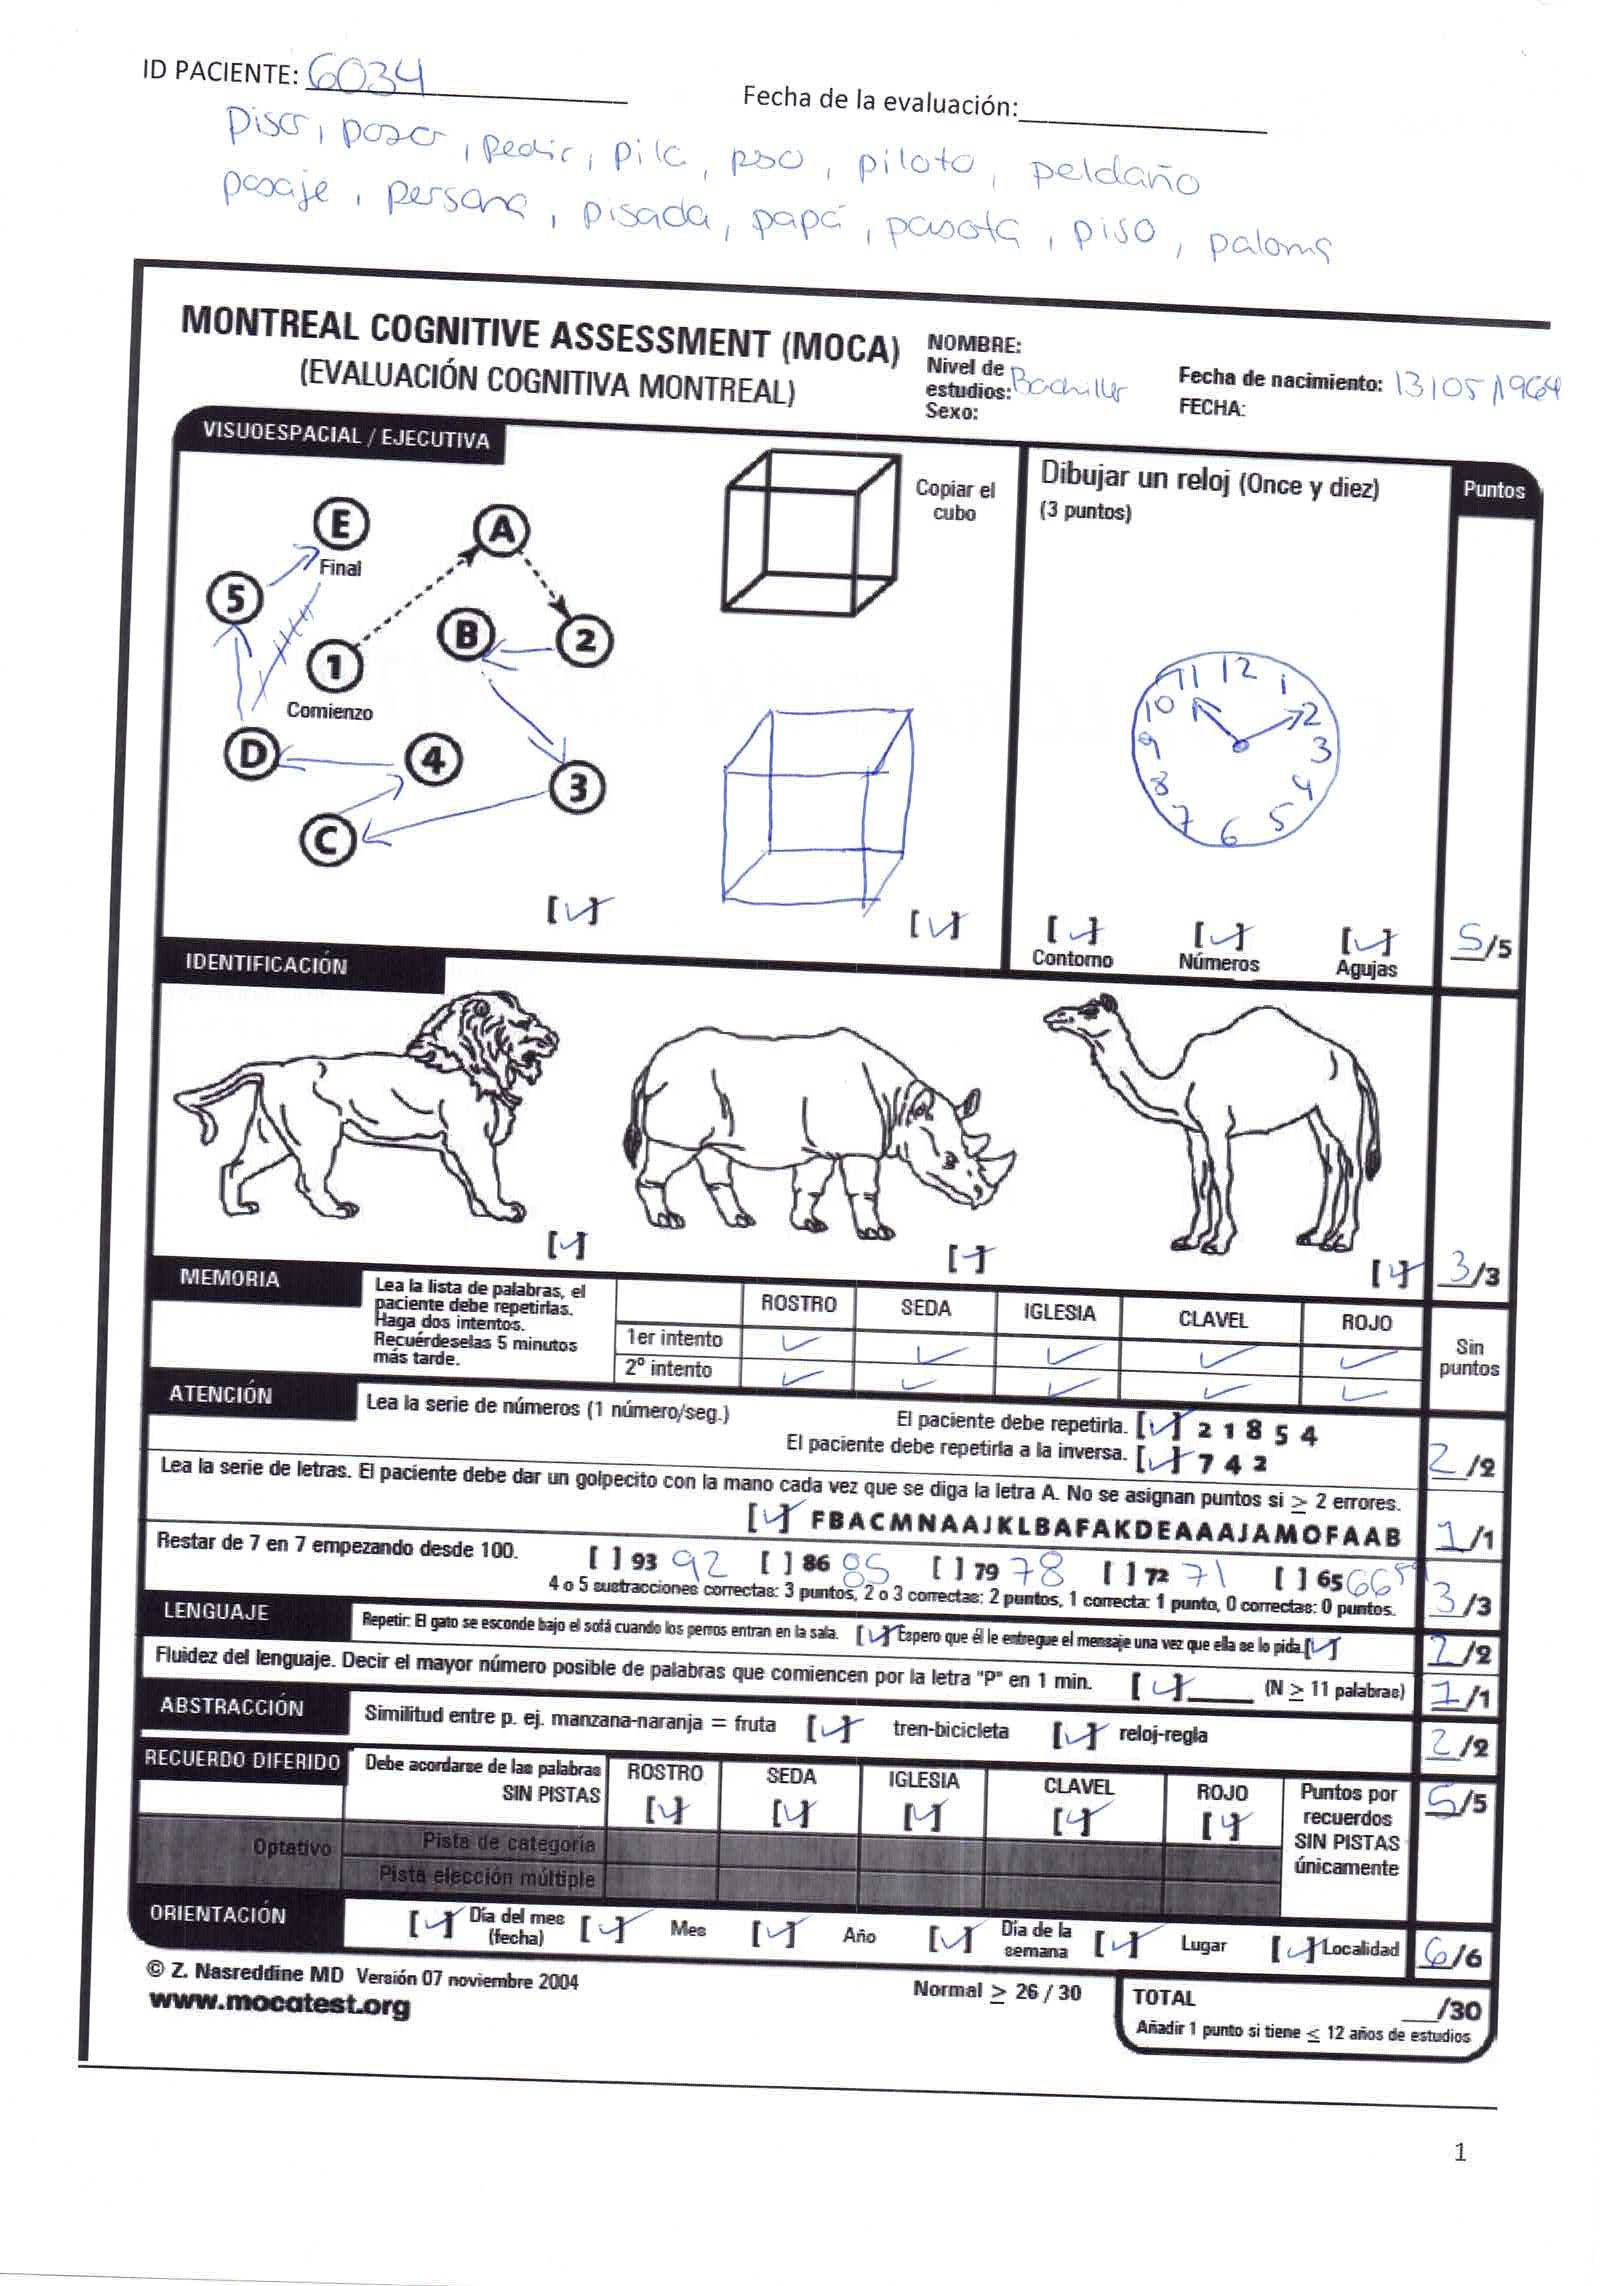 ID PACIENTE: 6034
Fecha de la evaluación:
pisar, posar, pedir, pila, piloto, peldaño
pasaje, persona, pisada, papá, pasota, piso, paloma
MONTREAL COGNITIVE ASSESSMENT (MOCA)
(EVALUACIÓN COGNITIVA MONTREAL)
NOMBRE:
Nivel de estudios: Bachiller
Sexo:
Fecha de nacimiento: 13/05/1964
FECHA:
VISUOESPACIAL / EJECUTIVA
E
Final
A
5
B
2
1
Comienzo
D
4
3
C
Copiar el
cubo
Dibujar un reloj (Once y diez)
(3 puntos)
Puntos
11 12 1
10 2
9 3
8 4
7 6 5
[✓] [✓] [✓] [✓] [✓] 5/5
Contorno Números Agujas
IDENTIFICACIÓN
[✓] [✓] [✓] 3/3
MEMORIA
Lea la lista de palabras, el
paciente debe repetirlas.
Haga dos intentos.
Recuérdeselas 5 minutos
más tarde.
ROSTRO SEDA IGLESIA CLAVEL ROJO
1er intento ✓ ✓ ✓ ✓ ✓
2º intento ✓ ✓ ✓ ✓ ✓
Sin
puntos
ATENCIÓN
Lea la serie de números (1 número/seg.) El paciente debe repetirla. [✓] 2 1 8 5 4
El paciente debe repetirla a la inversa. [✓] 7 4 2 2/2
Lea la serie de letras. El paciente debe dar un golpecito con la mano cada vez que se diga la letra A. No se asignan puntos si ≥ 2 errores.
[✓] FBACMNAAJKLBAFAKDEAAAJAMOFAAB 1/1
Restar de 7 en 7 empezando desde 100. [ ] 93 92 [ ] 86 85 [ ] 79 78 [ ] 72 71 [ ] 65 66
4 o 5 sustracciones correctas: 3 puntos, 2 o 3 correctas: 2 puntos, 1 correcta: 1 punto, 0 correctas: 0 puntos. 3/3
LENGUAJE
Repetir: El gato se esconde bajo el sofá cuando los perros entran en la sala. [✓] Espero que él le entregue el mensaje una vez que ella se lo pida. [✓] 2/2
Fluidez del lenguaje. Decir el mayor número posible de palabras que comiencen por la letra "P" en 1 min. [✓] (N ≥ 11 palabras) 1/1
ABSTRACCIÓN
Similitud entre p. ej. manzana-naranja = fruta [✓] tren-bicicleta [✓] reloj-regla 2/2
RECUERDO DIFERIDO
Debe acordarse de las palabras
SIN PISTAS
ROSTRO SEDA IGLESIA CLAVEL ROJO
[✓] [✓] [✓] [✓] [✓]
Puntos por
recuerdos
SIN PISTAS
únicamente
5/5
Optativo
Pista de categoría
Pista elección múltiple
ORIENTACIÓN
[✓] Día del mes (fecha) [✓] Mes [✓] Año [✓] Día de la semana [✓] Lugar [✓] Localidad 6/6
© Z. Nasreddine MD Versión 07 noviembre 2004
www.mocatest.org
Normal ≥ 26 / 30
TOTAL /30
Añadir 1 punto si tiene ≤ 12 años de estudios
1